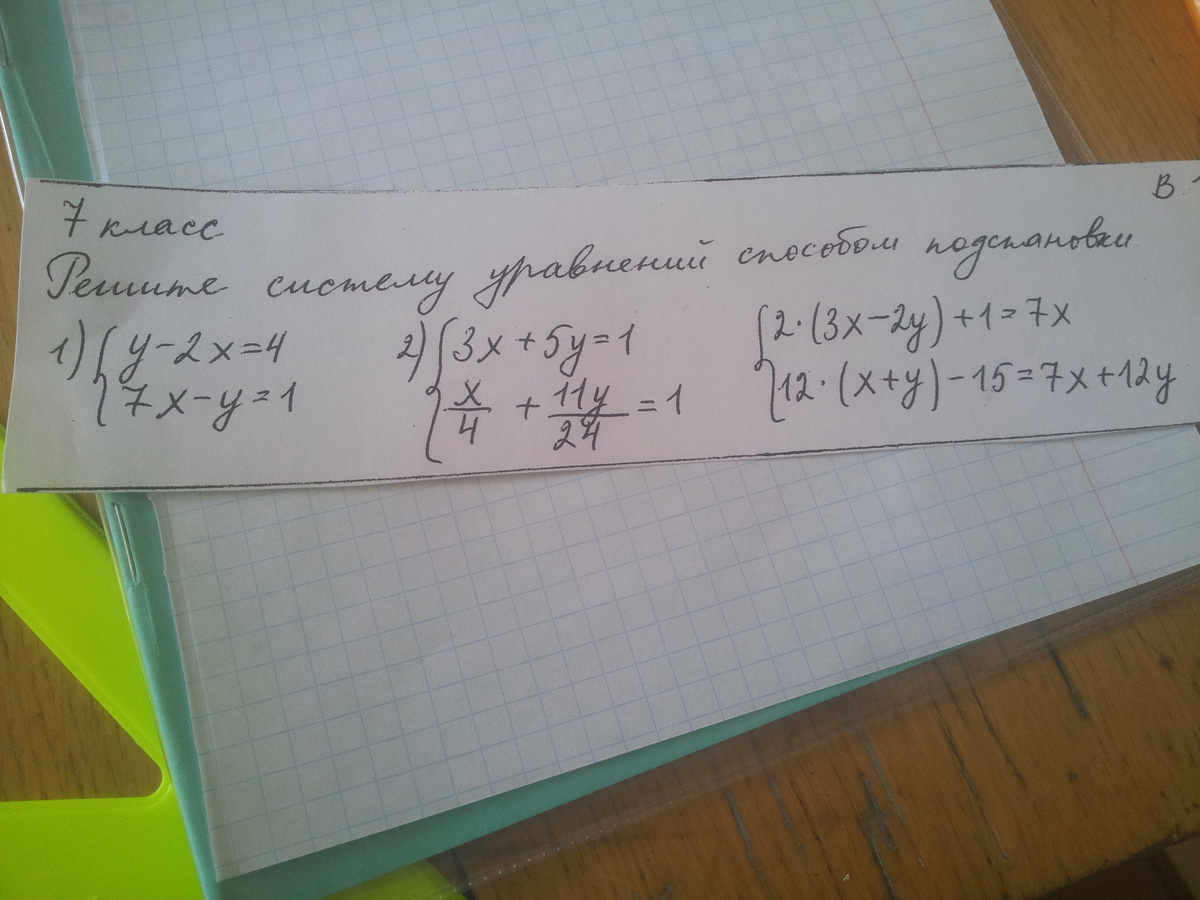 В 1
7 класс
Решите систему уравнений способом подстановки
1) { y-2x=4
7x-y=1
2) { 3x+5y=1
x/4 + 11y/24 =1
{ 2·(3x-2y)+1=7x
12·(x+y)-15=7x+12y